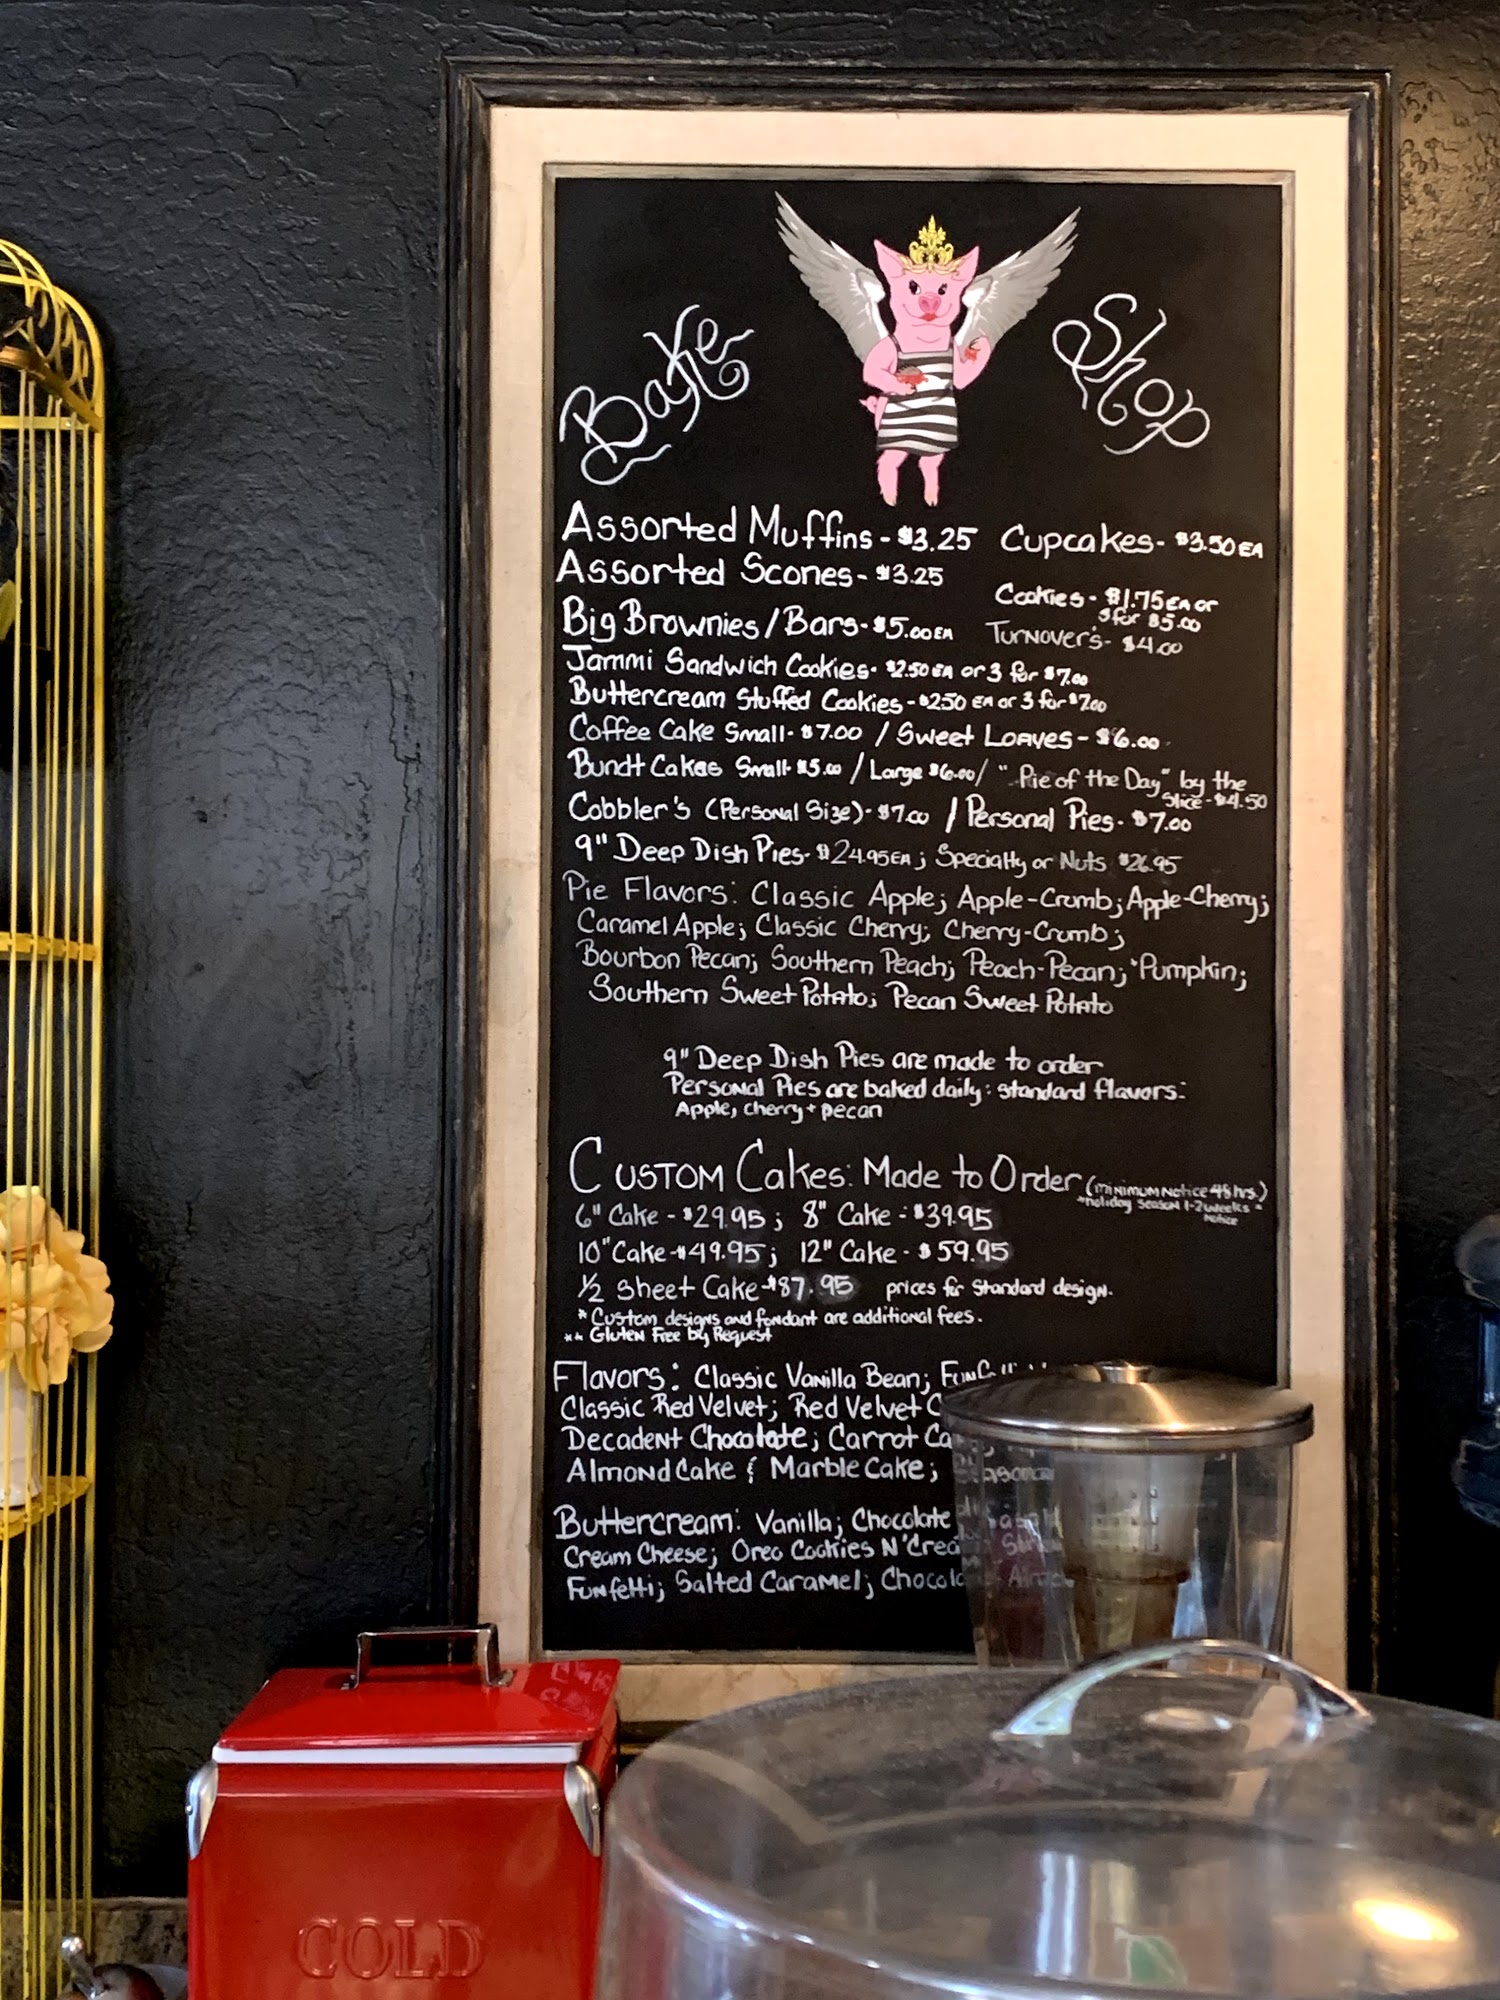 Bake Shop
Assorted Muffins - $3.25 Cupcakes - $3.50 EA
Assorted Scones - $3.25
Cookies - $1.75 EA or
3 for $5.00
Big Brownies / Bars - $5.00 EA Turnover's - $4.00
Jammi Sandwich Cookies - $2.50 EA or 3 for $7.00
Buttercream Stuffed Cookies - $2.50 EA or 3 for $7.00
Coffee Cake Small - $7.00 / Sweet Loaves - $6.00
Bundt Cakes Small $5.00 / Large $6.00 / "Pie of the Day" by the
Slice - $4.50
Cobbler's (Personal Size) - $7.00 / Personal Pies - $7.00
9" Deep Dish Pies - $24.95 EA; Specialty or Nuts $26.95
Pie Flavors: Classic Apple; Apple-Crumb; Apple-Cherry;
Caramel Apple; Classic Cherry; Cherry-Crumb;
Bourbon Pecan; Southern Peach; Peach-Pecan; *Pumpkin;
Southern Sweet Potato; Pecan Sweet Potato
9" Deep Dish Pies are made to order
Personal Pies are baked daily: standard flavors:
Apple, cherry + pecan
Custom Cakes: Made to Order (minimum notice 48 hrs.)
*holiday season 1-2 weeks
notice
6" Cake - $29.95; 8" Cake - $39.95
10" Cake - $49.95; 12" Cake - $59.95
1/2 Sheet Cake - $87.95 prices for standard design.
* Custom designs and fondant are additional fees.
** Gluten Free by Request
Flavors: Classic Vanilla Bean;
Classic Red Velvet; Red Velvet
Decadent Chocolate; Carrot
Almond Cake & Marble Cake;
Buttercream: Vanilla; Chocolate
Cream Cheese; Oreo Cookies N'
Funfetti; Salted Caramel;
COLD